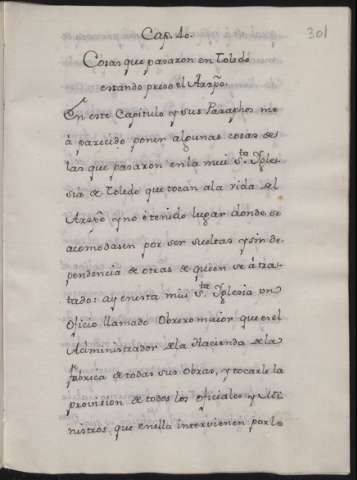 301
Cap. 40.
Cosas que pasaron en Toledo
estando preso el Arzpo.
En este Capitulo y sus Paraphos me
á parecido poner algunas cosas de
las que pasaron en la mui Sta. Igle-
sia de Toledo que tocan ala vida del
Arzpo y no é tenido lugar donde se
acomodasen por ser sueltas y sin de-
pendencia de otras de quien se á tra-
tado: ay en esta mui Sta. Iglesia un
Oficio llamado Obrero maior que es el
Administrador de la Hacienda de la
fabrica de todas sus Obras, y tocarle la
provision de todos los oficiales y Mi-
nistros que en ella intervienen por lo